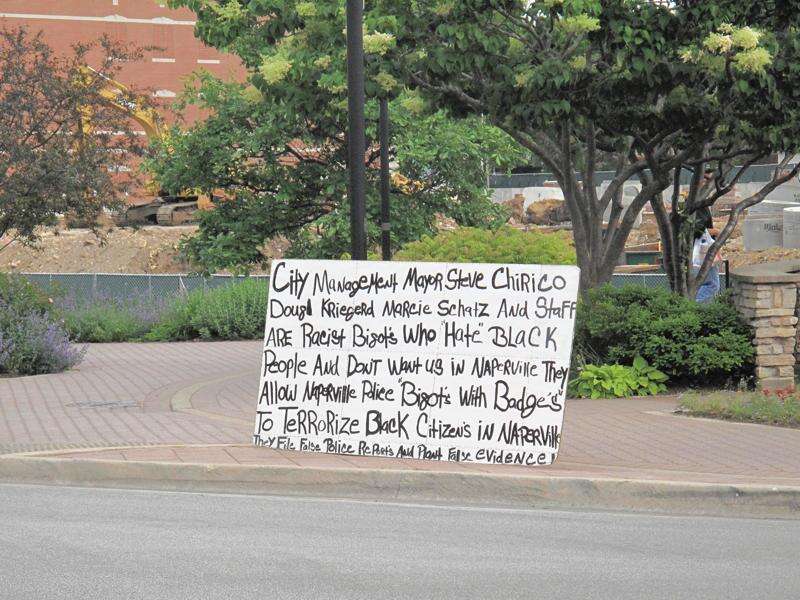 City Management Mayor Steve Chirico
Doug Kriegerd Marcie Schatz And Staff
ARE Racist Bigots Who "Hate" BLACK
People And Dont Want us in Naperville They
Allow Naperville Police "Bigots With Badges"
To TERRORIZE Black Citizen's in NAPERVille
They File False Police Reports And Plant False evidence!